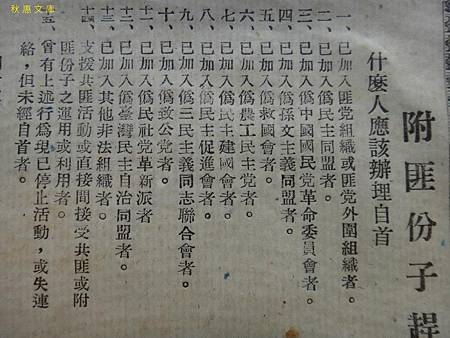 秋惠文庫
附匪份子趕
什麼人應該辦理自首
一、已加入匪黨組織或匪黨外圍組織者。
二、已加入僞民主同盟者。
三、已加入僞中國國民黨革命委員會者。
四、已加入僞孫文主義同盟者。
五、已加入僞救國會者。
六、已加入僞農工民主黨者。
七、已加入僞民主建國會者。
八、已加入僞民主促進會者。
九、已加入僞三民主義同志聯合會者。
十、已加入僞致公黨者。
十一、已加入僞民社黨革新派者
十二、已加入僞臺灣民主自治同盟者。
十三、已加入其他非法組織者。
十四、支援共匪活動或直接間接受共匪或附
匪份子之運用或利用者。
十五、曾有上述行爲現已停止活動，或失連
絡，但未經自首者。